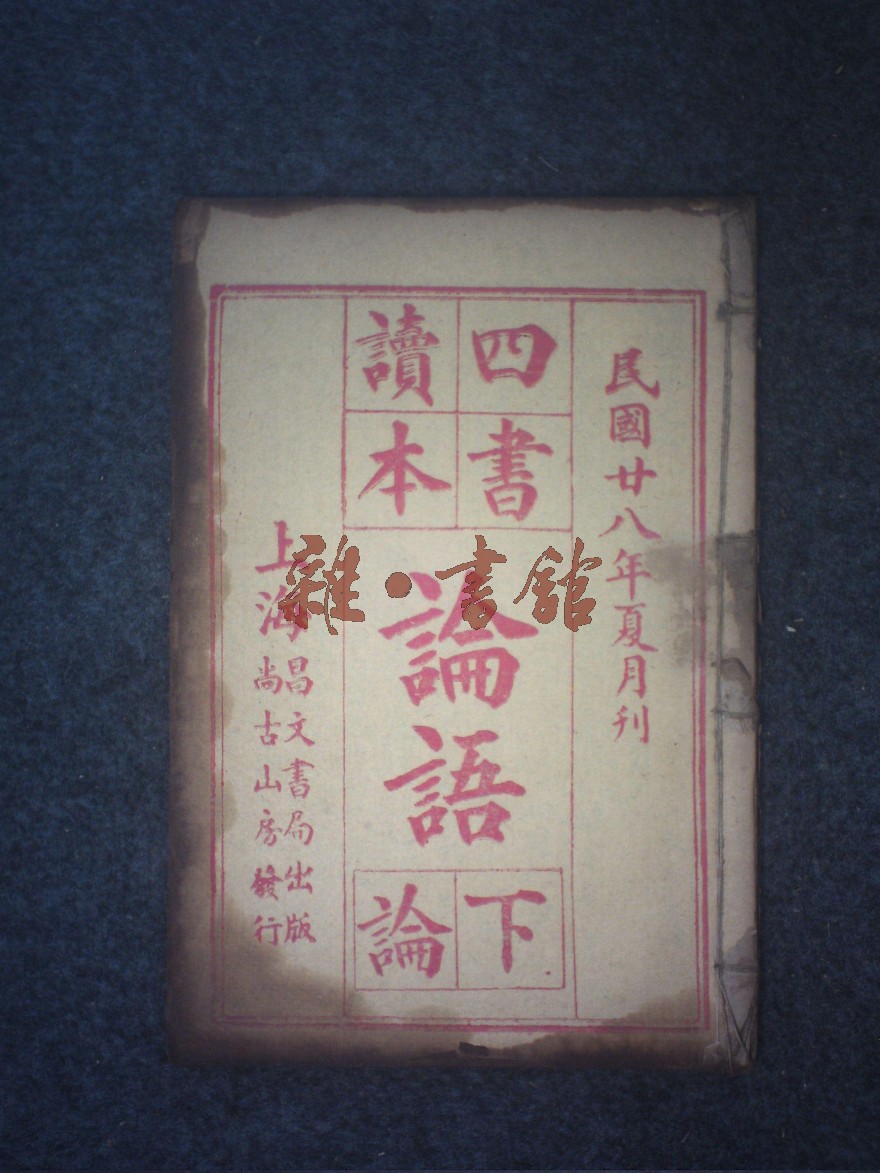 民國廿八年夏月刊
四書
讀本
論語
下
論
上海
昌文書局出版
尚古山房發行
雜·書館